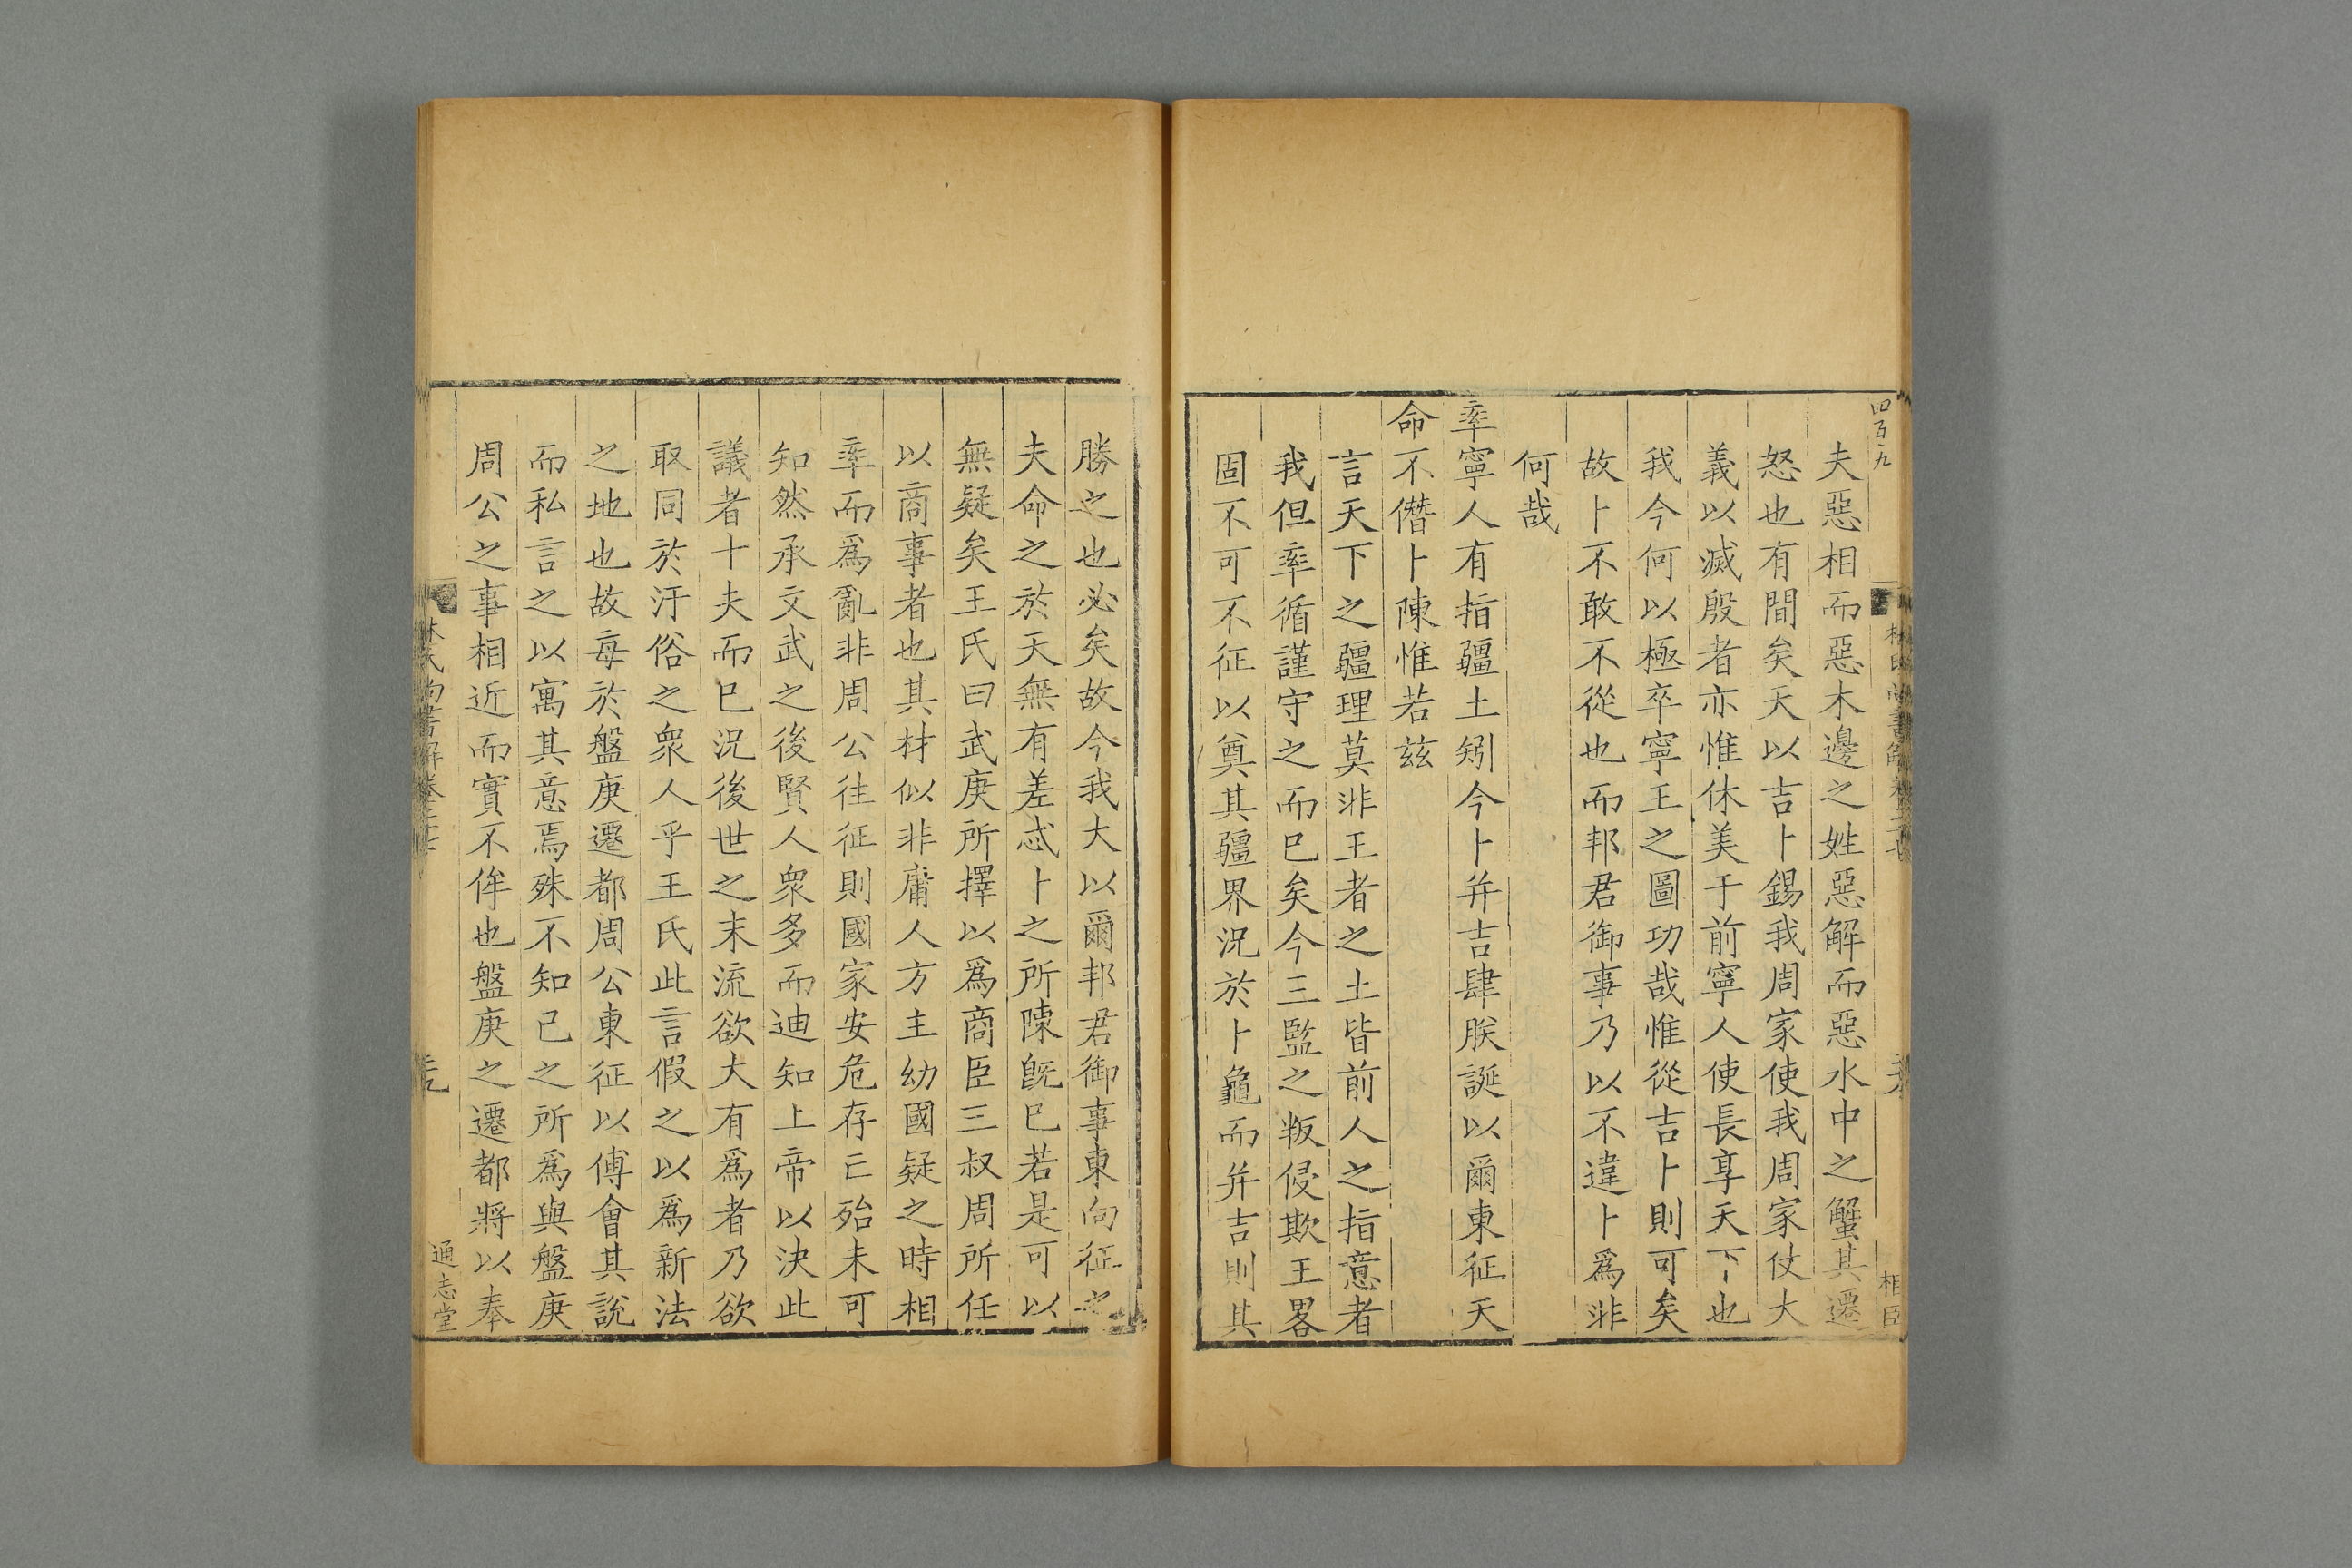 四百九
夫惡相而惡木邊之姓惡解而惡水中之蟹其遷
怒也有間矣天以吉卜錫我周家使我周家仗大
義以滅殷者亦惟休美于前寧人使長享天下也
我今何以極卒寧王之圖功哉惟從吉卜則可矣
故卜不敢不從也而邦君御事乃以不違卜爲非
何哉
率寧人有指疆土矧今卜并吉肆朕誕以爾東征天
命不僭卜陳惟若兹
言天下之疆理莫非王者之土皆前人之指意者
我但率循謹守之而巳矣今三監之叛侵欺王畧
固不可不征以奠其疆界況於卜龜而并吉則其
勝之也必矣故今我大以爾邦君御事東向征之
夫命之於天無有差忒卜之所陳旣巳若是可以
無疑矣王氏曰武庚所擇以爲商臣三叔周所任
以商事者也其材似非庸人方主幼國疑之時相
率而爲亂非周公往征則國家安危存亡殆未可
知然承文武之後賢人衆多而迪知上帝以決此
議者十夫而巳況後世之末流欲大有爲者乃欲
取同於汙俗之衆人乎王氏此言假之以爲新法
之地也故每於盤庚遷都周公東征以傅會其說
而私言之以寓其意焉殊不知己之所爲與盤庚
周公之事相近而實不侔也盤庚之遷都將以奉
林氏尚書解卷二十七
通志堂